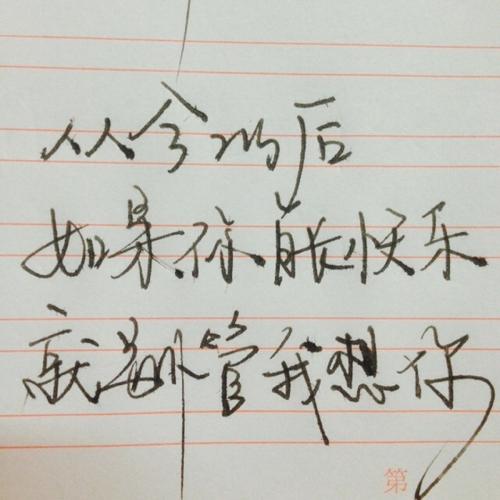 从今以后
如果你能快乐
就别管我想你
第